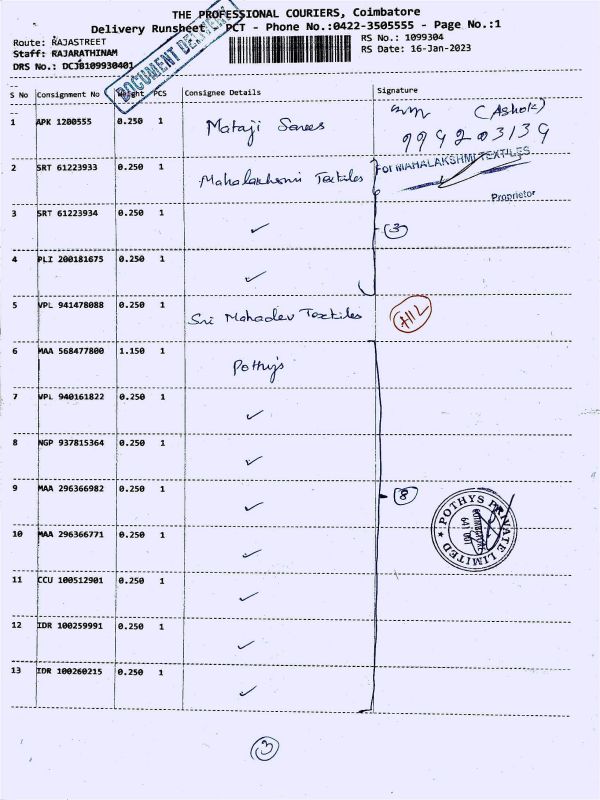 THE PROFESSIONAL COURIERS, Coimbatore
Delivery Runsheet PCT - Phone No.:0422-3505555 - Page No.:1
Route: RAJASTREET
RS No.: 1099304
Staff: RAJARATHINAM
RS Date: 16-Jan-2023
DRS No.: DCJ8109930401
DOCUMENT DELIVERY
S No Consignment No Weight PCS Consignee Details Signature
1 APK 1200555 0.250 1 Mataji Sarees (Ashok)
9942203139
2 SRT 61223933 0.250 1 Mahalakshmi Textiles For MAHALAKSHMI TEXTILES
Proprietor
3 SRT 61223934 0.250 1 ✓ (3)
4 PLI 200181675 0.250 1 ✓
5 VPL 941478088 0.250 1 Sri Mahadev Textiles
6 MAA 568477800 1.150 1 Pothy's
7 VPL 940161822 0.250 1 ✓
8 NGP 937815364 0.250 1 ✓
9 MAA 296366982 0.250 1 ✓ (8)
POTHYS PRIVATE LIMITED
COIMBATORE
641 001
10 MAA 296366771 0.250 1 ✓
11 CCU 100512901 0.250 1 ✓
12 IDR 100259991 0.250 1 ✓
13 IDR 100260215 0.250 1 ✓
(3)